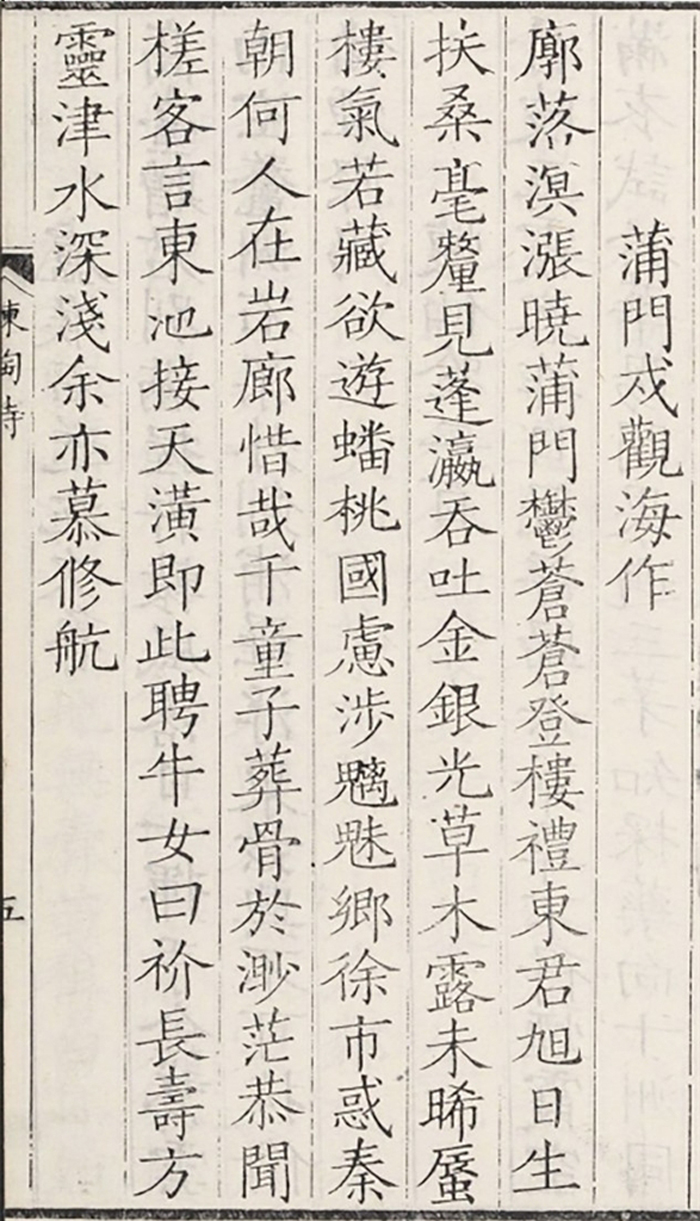 蒲門戍觀海作
廓落溟漲曉蒲門鬱蒼蒼登樓禮東君旭日生
扶桑毫釐見蓬瀛吞吐金銀光草木露未晞蜃
樓氣若藏欲遊蟠桃國慮涉魑魅鄉徐市惑秦
朝何人在岩廊惜哉千童子葬骨於渺茫恭聞
槎客言東池接天潢即此聘牛女曰祈長壽方
靈津水深淺余亦慕修航
陳陶詩
五